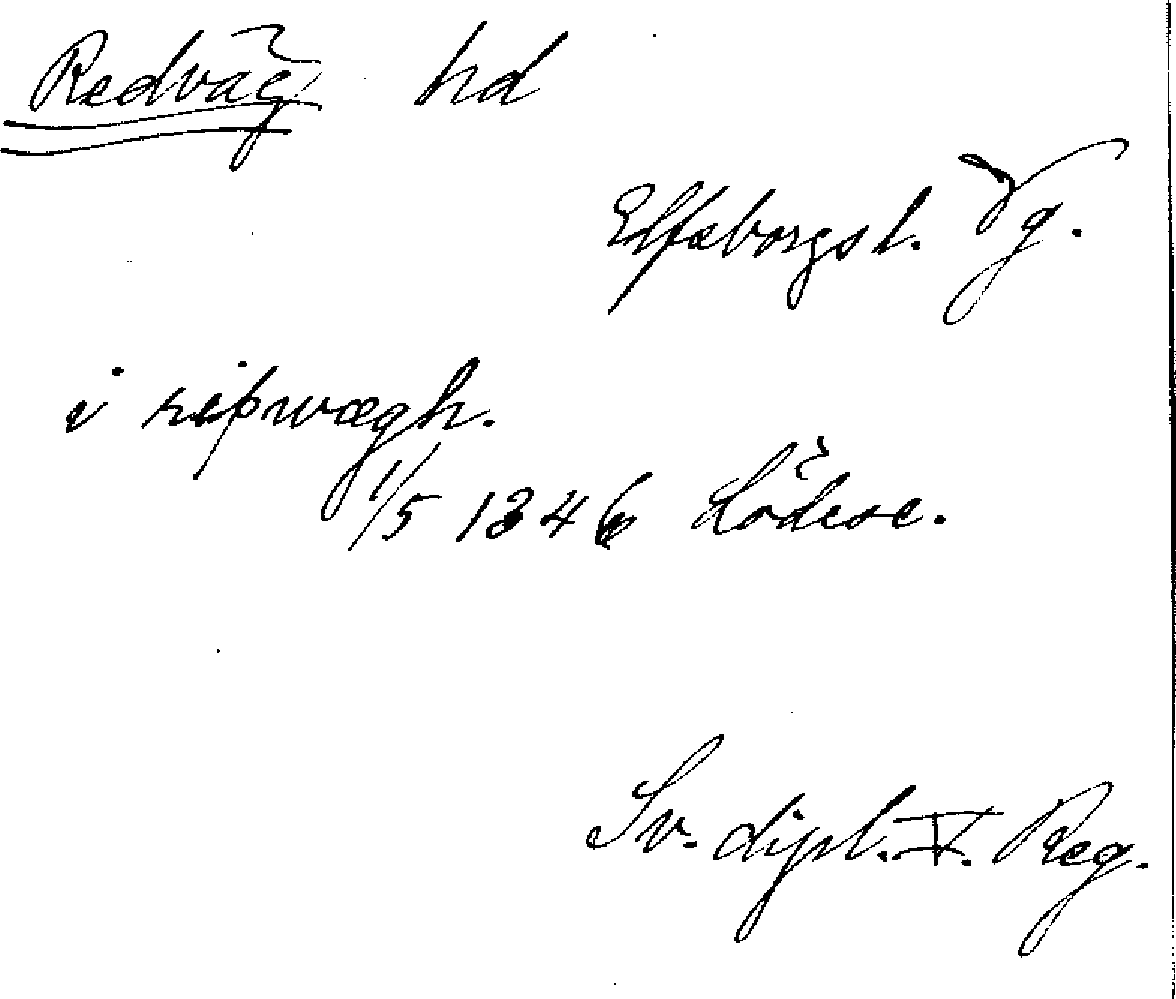 Redväg hd
Elfsborgs l. Vg.
i riþwægh.
1/5 1346 Lödese.
Sv. dipl. V. Reg.